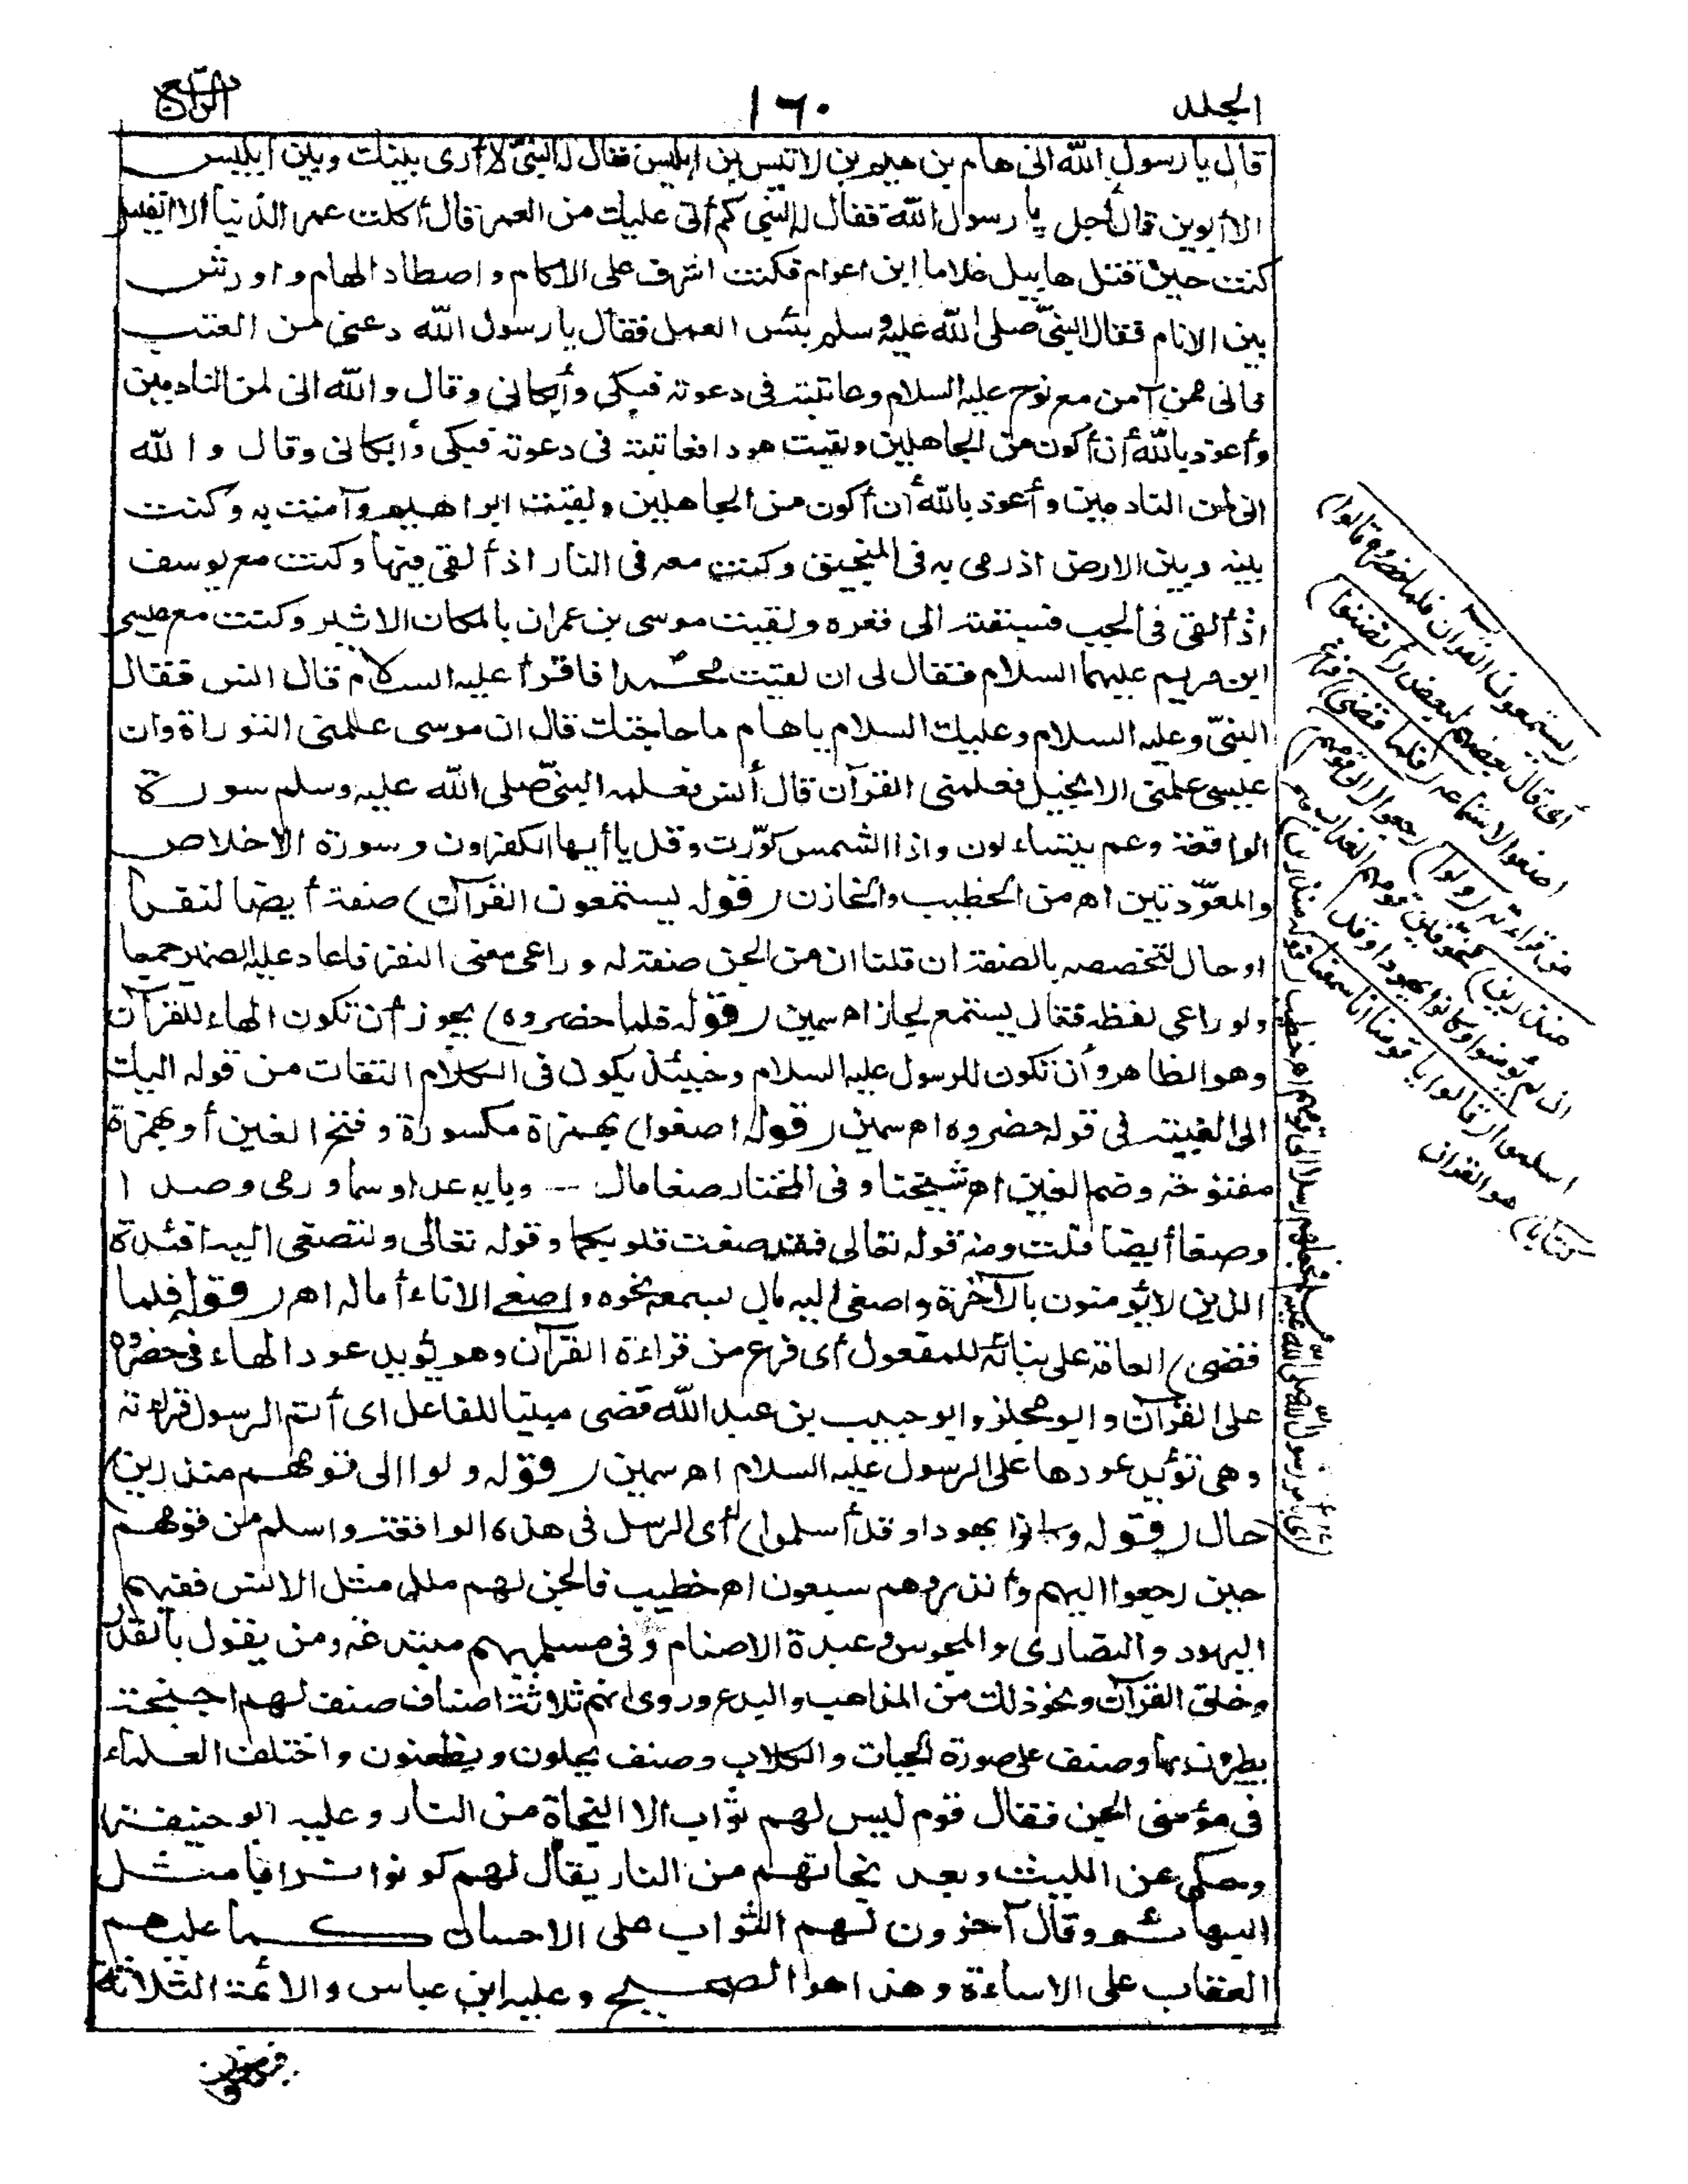 الجلد
١٦٠
الرابع
قال يا رسول الله انى هام بن هيم بن لاقيس بن ابليس فقال له النبىّ لا أرى بينك وبين ابليس
الا أبوين قال أجل يا رسول الله فقال له النبى كم أتى عليك من العمر قال أكلت عمر الدنيا الا
كنت حين قتل هابيل غلاما ابن اعوام فكنت اشرف على الآكام و اصطاد الهام و اورش
بين الانام فقال النبىّ صلى الله عليه وسلم بئس العمل فقال يا رسول الله دعنى من العتب
فانى ممن آمن مع نوح عليه السلام وعاتبته فى دعوته فبكى وأبكانى وقال والله انى لمن النادمين
وأعوذ بالله أن أكون من الجاهلين ولقيت هودا فعاتبته فى دعوته فبكى وأبكانى وقال والله
انى لمن النادمين وأعوذ بالله أن أكون من الجاهلين ولقيت ابراهيم وآمنت به وكنت
بينه وبين الارض اذ رمى به فى المنجنيق وكنت معه فى النار اذ ألقى فيها وكنت مع يوسف
اذ ألقى فى الجب فسبقته الى قعره ولقيت موسى بن عمران بالمكان الاثير وكنت مع عيسى
ابن مريم عليهما السلام فقال لى ان لقيت محمدا فاقرأ عليه السلام قال انس فقال
النبىّ وعليه السلام وعليك السلام يا هام ما حاجتك قال ان موسى علمنى التوراة وان
عيسى علمنى الانجيل فعلمنى القرآن قال أنس فعلمه النبىّ صلى الله عليه وسلم سورة
الواقعة وعم يتساءلون واذا الشمس كوّرت وقل يا أيها الكفرون وسورة الاخلاص
والمعوّذتين اهـ من الخطيب والخازن (قوله يستمعون القرآن) صفة أيضا لنفرا
او حال لتخصصه بالصفة ان قلنا ان من الجن صفة له وراعى معنى النفر فاعاد عليه الضمير جمعا
ولو راعى لفظه فقال يستمع لجاز اهـ سمين (قوله فلما حضروه) يجوز أن تكون الهاء للقرآن
وهو الظاهر وأن تكون للرسول عليه السلام وحينئذ يكون فى الكلام التفات من قوله اليك
الى الغيبة فى قوله حضروه اهـ سمين (قوله اصغوا) بهمزة مكسورة وفتح الغين أو بهمزة
مفتوحة وضم الغين اهـ شيخنا وفى المختار صغا مال — وبابه عدا وسما ورمى وصدا
وصغا أيضا قلت ومنه قوله تعالى فقد صغت قلوبكما وقوله تعالى ولتصغى اليه افئدة
الذين لا يؤمنون بالآخرة واصغى اليه مال بسمعه نحوه واصغى الاناء أماله اهـ (قوله فلما
قضى) العامة على بنائه للمفعول أى فرغ من قراءة القرآن وهو يؤيد عود الهاء فى حضروه
على القرآن وابو مجلز وابو حبيب بن عبد الله قضى مبنيا للفاعل اى أتم الرسول قراءته
وهى تؤيد عودها على الرسول عليه السلام اهـ سمين (قوله ولوا الى قومهم منذرين)
حال (قوله وكانوا يهودا وقد أسلموا) أى الرسل فى هذه الواقعة واسلم من قومهم
حين رجعوا اليهم وأنذروهم سبعون اهـ خطيب فالجن لهم ملل مثل الانس ففيهم
اليهود والنصارى والمجوس وعبدة الاصنام وفى مسلميهم مبتدعة ومن يقول بالقدر
وخلق القرآن ونحو ذلك من المذاهب والبدع وروى انهم ثلاثة اصناف صنف لهم اجنحة
يطيرون بها وصنف على صورة الحيات والكلاب وصنف يحلون ويظعنون واختلف العلماء
فى مؤمنى الجن فقال قوم ليس لهم ثواب الا النجاة من النار وعليه ابو حنيفة
وحكى عن الليث وبعد نجاتهم من النار يقال لهم كونوا ترابا مثل
البهائم وقال آخرون لهم الثواب على الاحسان كما عليهم
العقاب على الاساءة وهذا هو الصحيح وعليه ابن عباس والائمة الثلاثة
يستمعون القرآن فلما حضروه قالوا)
أى قال بعضهم لبعض (أنصتوا)
اصغوا لاستماعه (فلما قضى) فرغ
من قراءته (ولوا) رجعوا (الى قومهم
منذرين) مخوفين قومهم العذاب
ان لم يؤمنوا وكانوا يهودا وقد
اسلموا (قالوا يا قومنا انا سمعنا
كتابا) هو القرآن